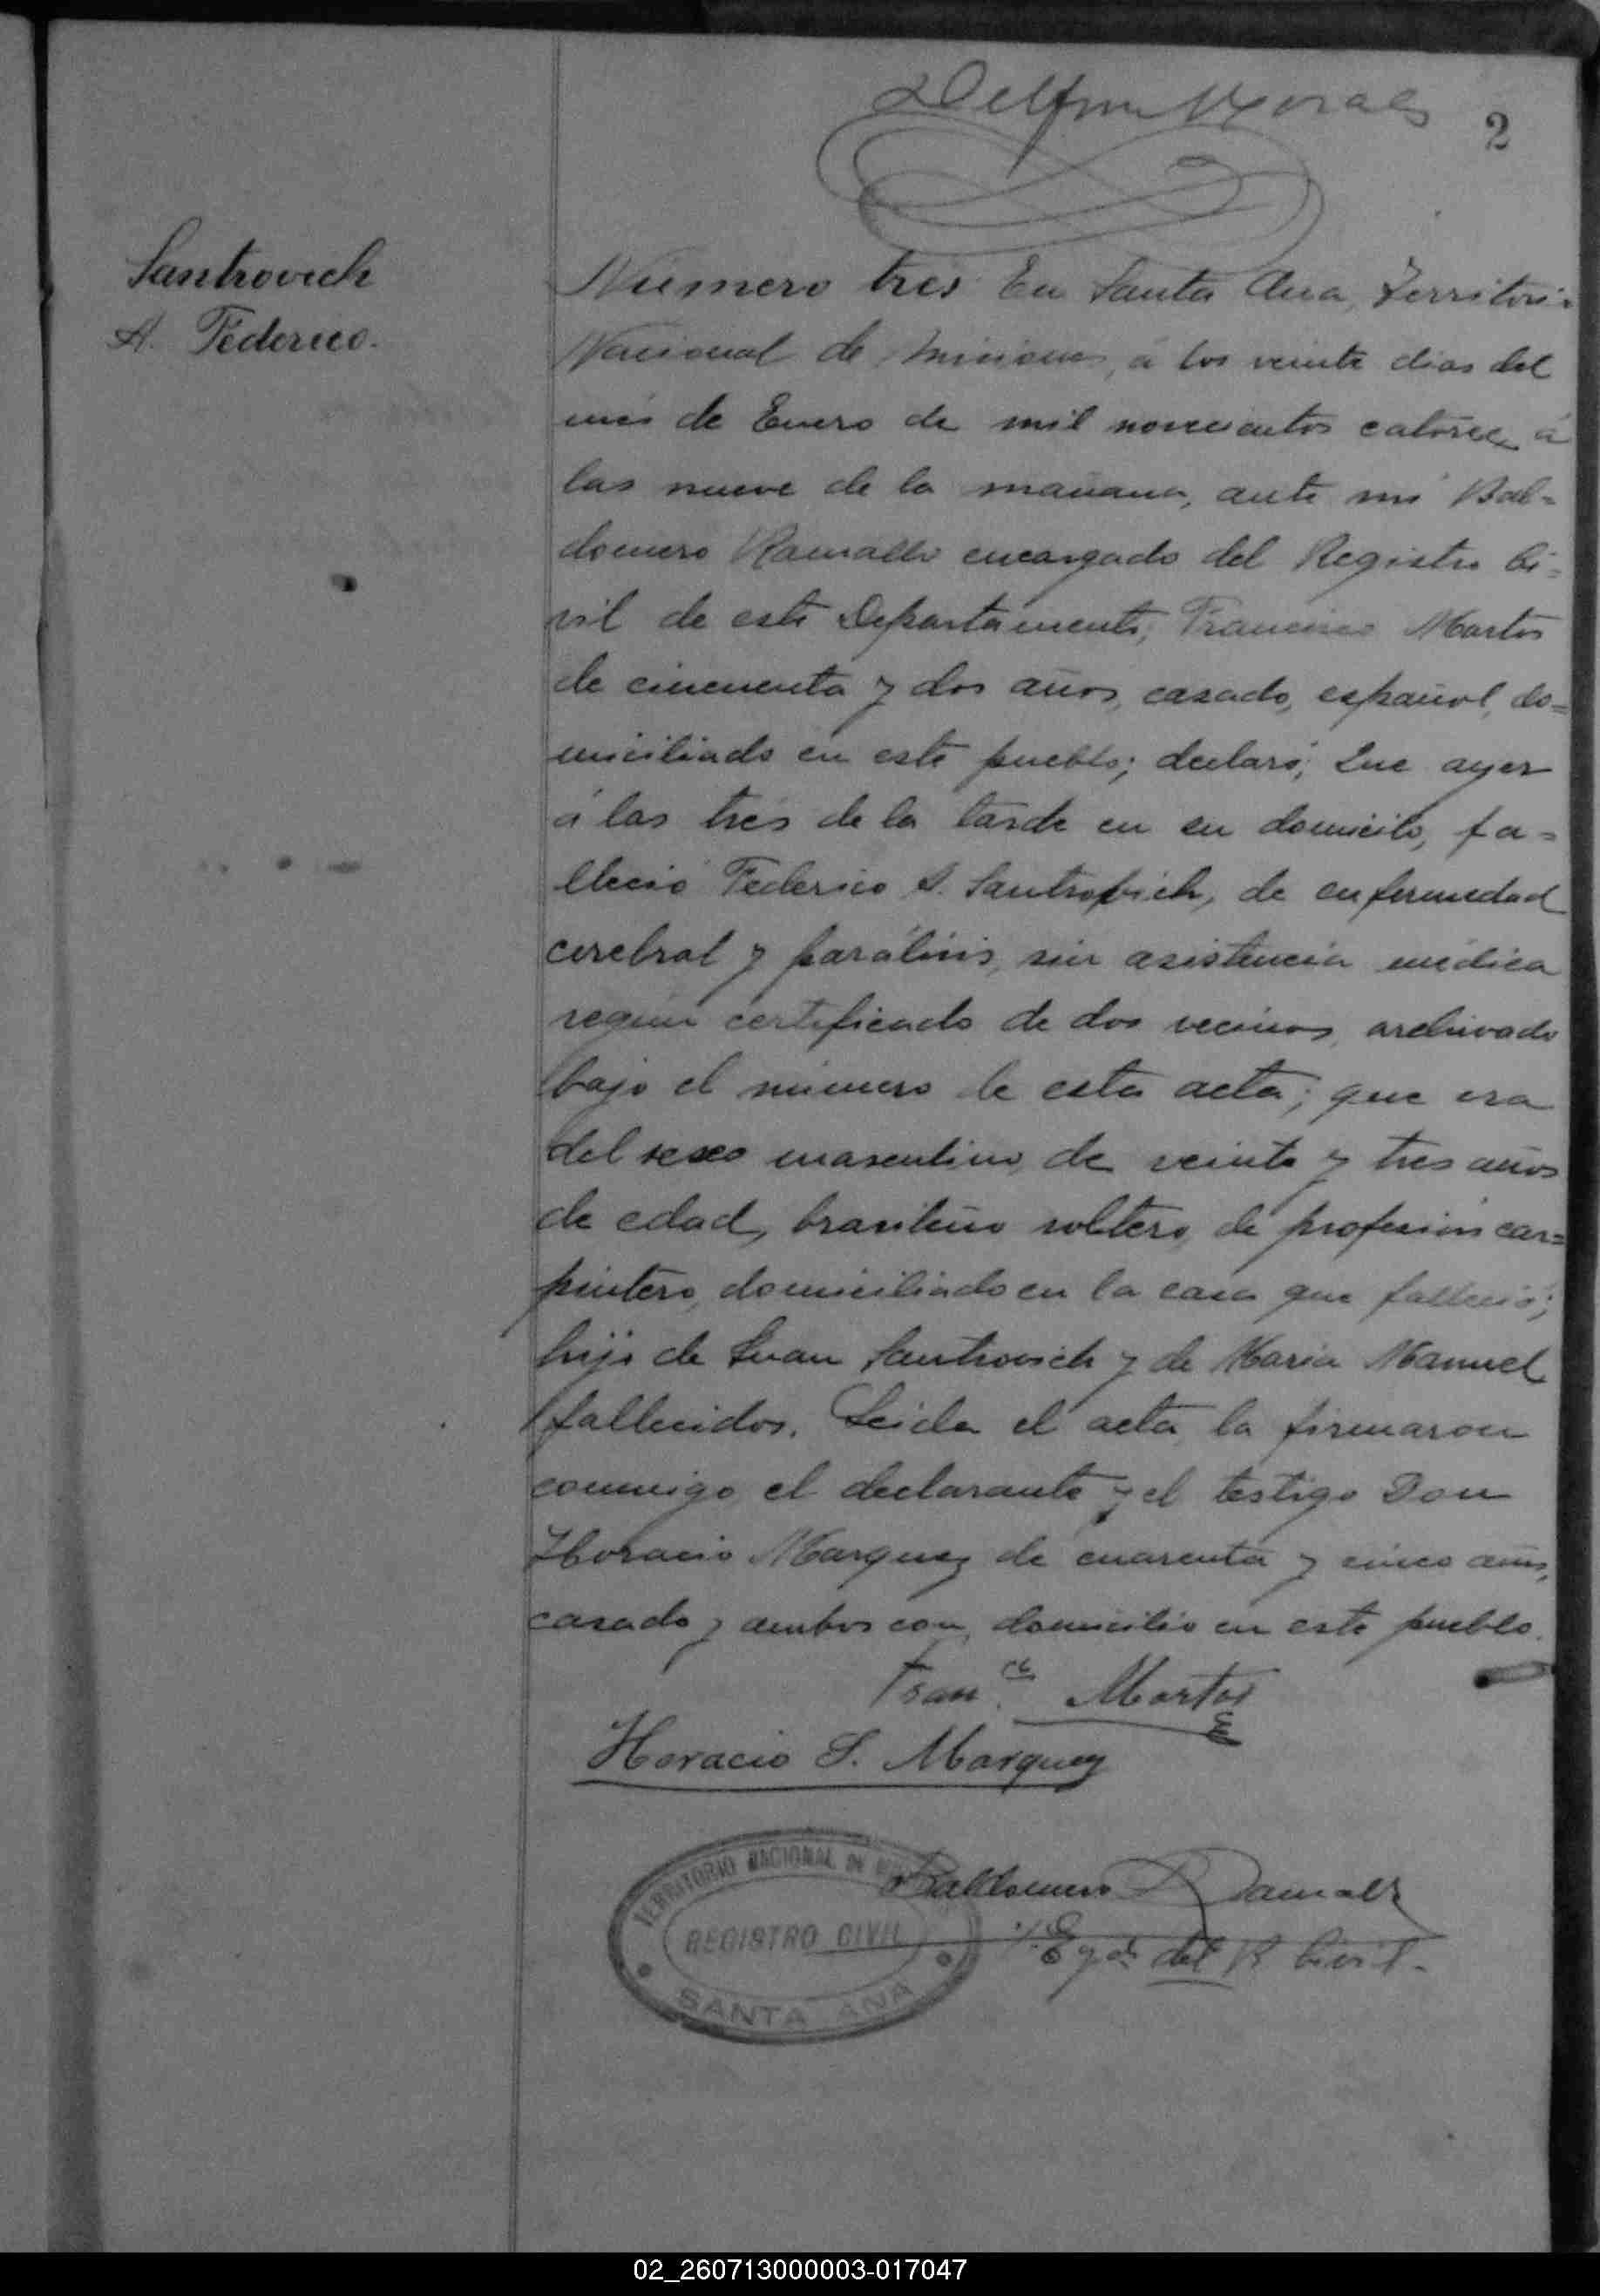 Delfin Morales
2
Santrovich
A. Federico.
Número tres En Santa Ana, Territorio
Nacional de Misiones, á los veinte dias del
mes de Enero de mil novecientos catorce á
las nueve de la mañana, ante mi Bal=
domero Ramallo encargado del Registro Ci=
vil de este Departamento, Francisco Martos
de cincuenta y dos años, casado, español, do=
miciliado en este pueblo; declaró; Que ayer
á las tres de la tarde en su domicilo, fa=
lleció Federico A. Santrovich, de enfermedad
cerebral y parálisis, sin asistencia médica
según certificado de dos vecinos, archivado
bajo el número de esta acta; que era
del sexo masculino, de veinte y tres años
de edad, brasileño soltero, de profesión car=
pintero, domiciliado en la casa que falleció;
hijo de Juan Santrovich y de Maria Manuel
fallecidos. Leida el acta, la firmaron
conmigo el declarante y el testigo Don
Horacio Marquez de cuarenta y cinco años,
casado y ambos con domicilio en este pueblo.
Fran.co Martos
Horacio S. Marquez
TERRITORIO NACIONAL DE
REGISTRO CIVIL
SANTA ANA
Baldomero Ramallo
Egdo del R Civil.
02_260713000003-017047